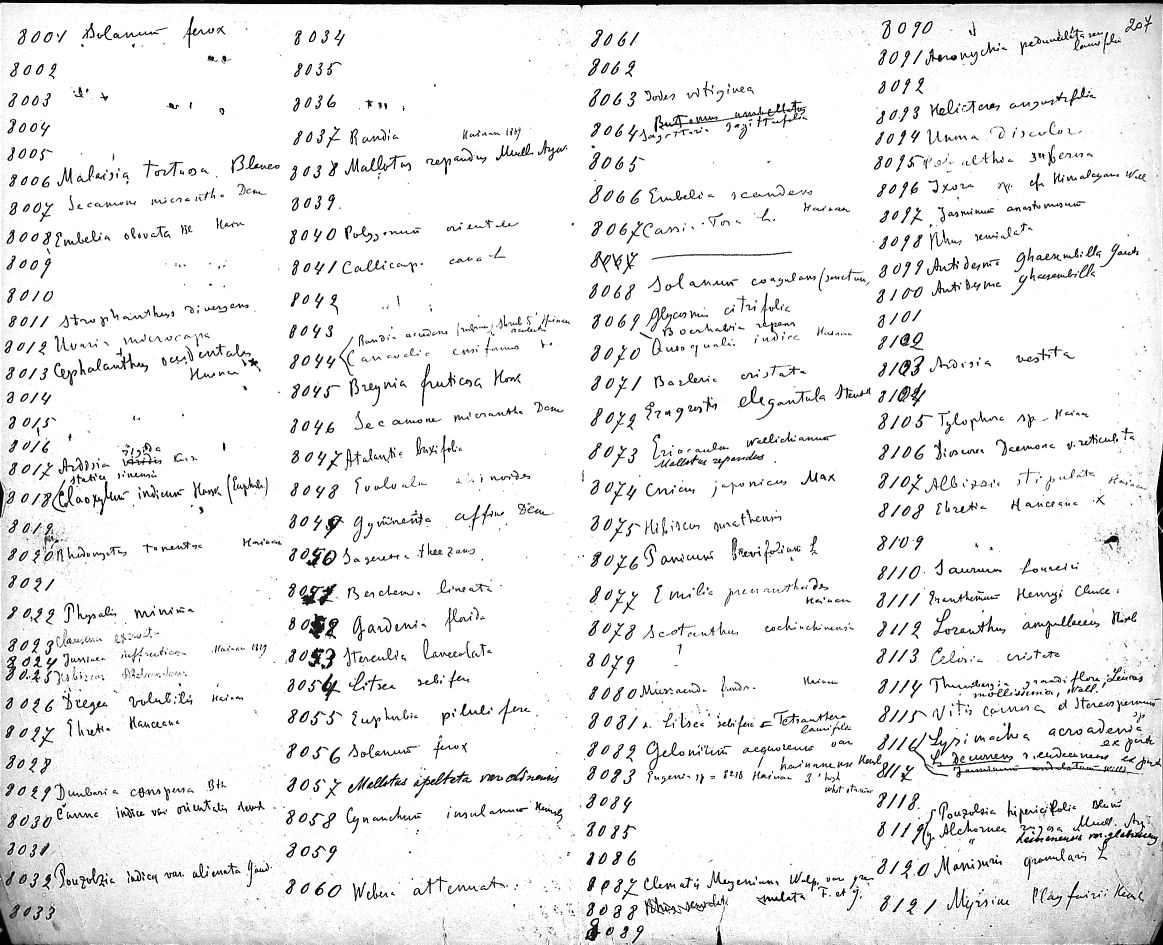 207
8001 Solanum ferox
8002
8003
8004
8005
8006 Malaisia tortuosa Blanco
8007 Secamone micrantha Dcne
8008 Embelia obovata He Hain
8009
8010
8011 Strophanthus divergens
8012 Uvaria microcarpa
8013 Cephalanthus occidentalis
Hainan
8014
8015
8016
8017 Ardisia rigida
statice sinensis
8018 Claoxylon indicum Hassk (Euphorb)
8019
8020 Rhodomyrtus tomentosa Hainan
8021
8022 Physalis minima
8023 Clausena excavata
8024 Jussiaea suffruticosa Hainan 1889
8025 Hibiscus
8026 Dregea volubilis Hainan
8027 Ehretia Hanceana
8028
8029 Dunbaria conspersa Bth
8030 Canna indica var orientalis
8031
8032 Pouzolzia indica var. alienata Gaud
8033
8034
8035
8036
8037 Randia Hainan 1889
8038 Mallotus repandus Muell Agov
8039
8040 Polygonum orientale
8041 Callicarp. cana L
8042
8043
Canavalia ensiformis
8044
8045 Breynia fruticosa Hook
8046 Secamone micrantha Dcne
8047 Atalantia buxifolia
8048 Evolvulus alsinoides
8049 Gymnema affine Dcne
8050 Sageretia theezans
8051 Berchemia lineata
8052 Gardenia florida
8053 Sterculia lanceolata
8054 Litsea sebifera
8055 Euphorbia pilulifera
8056 Solanum ferox
8057 Mallotus apeltata var chinensis
8058 Cynanchum insulanum Hemsl
8059
8060 Webera attenuat
8061
8062
8063 Iodes vitiginea
Butomus umbellatus
8064 Sagittaria sagittifolia
8065
8066 Embelia scandens
8067 Cassia Tora L. Hainan
8067
8068 Solanum coagulans (sanctum,
8069 Glycosmis citrifolia
Boerhavia repens
8070 Quisqualis indica Hainan
8071 Barleria cristata
8072 Eragrostis elegantula Steudel
8073 Eriocaulon wallichianum
Mallotus repandus
8074 Cnicus japonicus Max
8075 Hibiscus surathensis
8076 Panicum brevifolium L
8077 Emilia prenanthoidea
Hainan
8078 Scotanthus cochinchinensis
8079
8080 Mussaenda Hainan
8081 Litsea sebifera = Tetranthera
laurifolia
8082 Gelonium aequoreum var
hainanense Hemsl
8083 Eugenia sp = 8216 Hainan 3' high
8084
8085
8086
8087 Clematis Meyeniana Walp. var gra
nulata F. et G.
8088
8089
8090
8091 Acronychia pedunculata var
laurifolia
8092
8093 Helicteres angustifolia
8094 Unona Discolor
8095 Polyalthia suberosa
8096 Ixora sp. cf. Himalayana Wall
8097 Jasminum anastomosum
8098 Rhus semialata
8099 Antidesma ghaesembilla Gaertn
8100 Antidesma ghaesembilla
8101
8102
8103 Ardisia vestita
8104
8105 Tylophora sp. Hainan
8106 Dioscorea Daemona v. reticulata
8107 Albizzia stipulata Hainan
8108 Ehretia Hanceana X
8109
8110 Saururus Loureiri
8111 Eranthemum Henryi Clarke.
8112 Loranthus ampullaceus Roxb
8113 Celosia cristata
8114 Thunbergia grandiflora,
8115 Vitis carnosa et Stereospermum
sp
8116 Lysimachia acroadenia
ex parte
8117 Decurrens
8118
Pouzolzia hypericifolia Blume
8119 Alchornea rugosa Muell. Arg
8120 Manisuris granularis L
8121 Myrsine Playfairii Hemsl